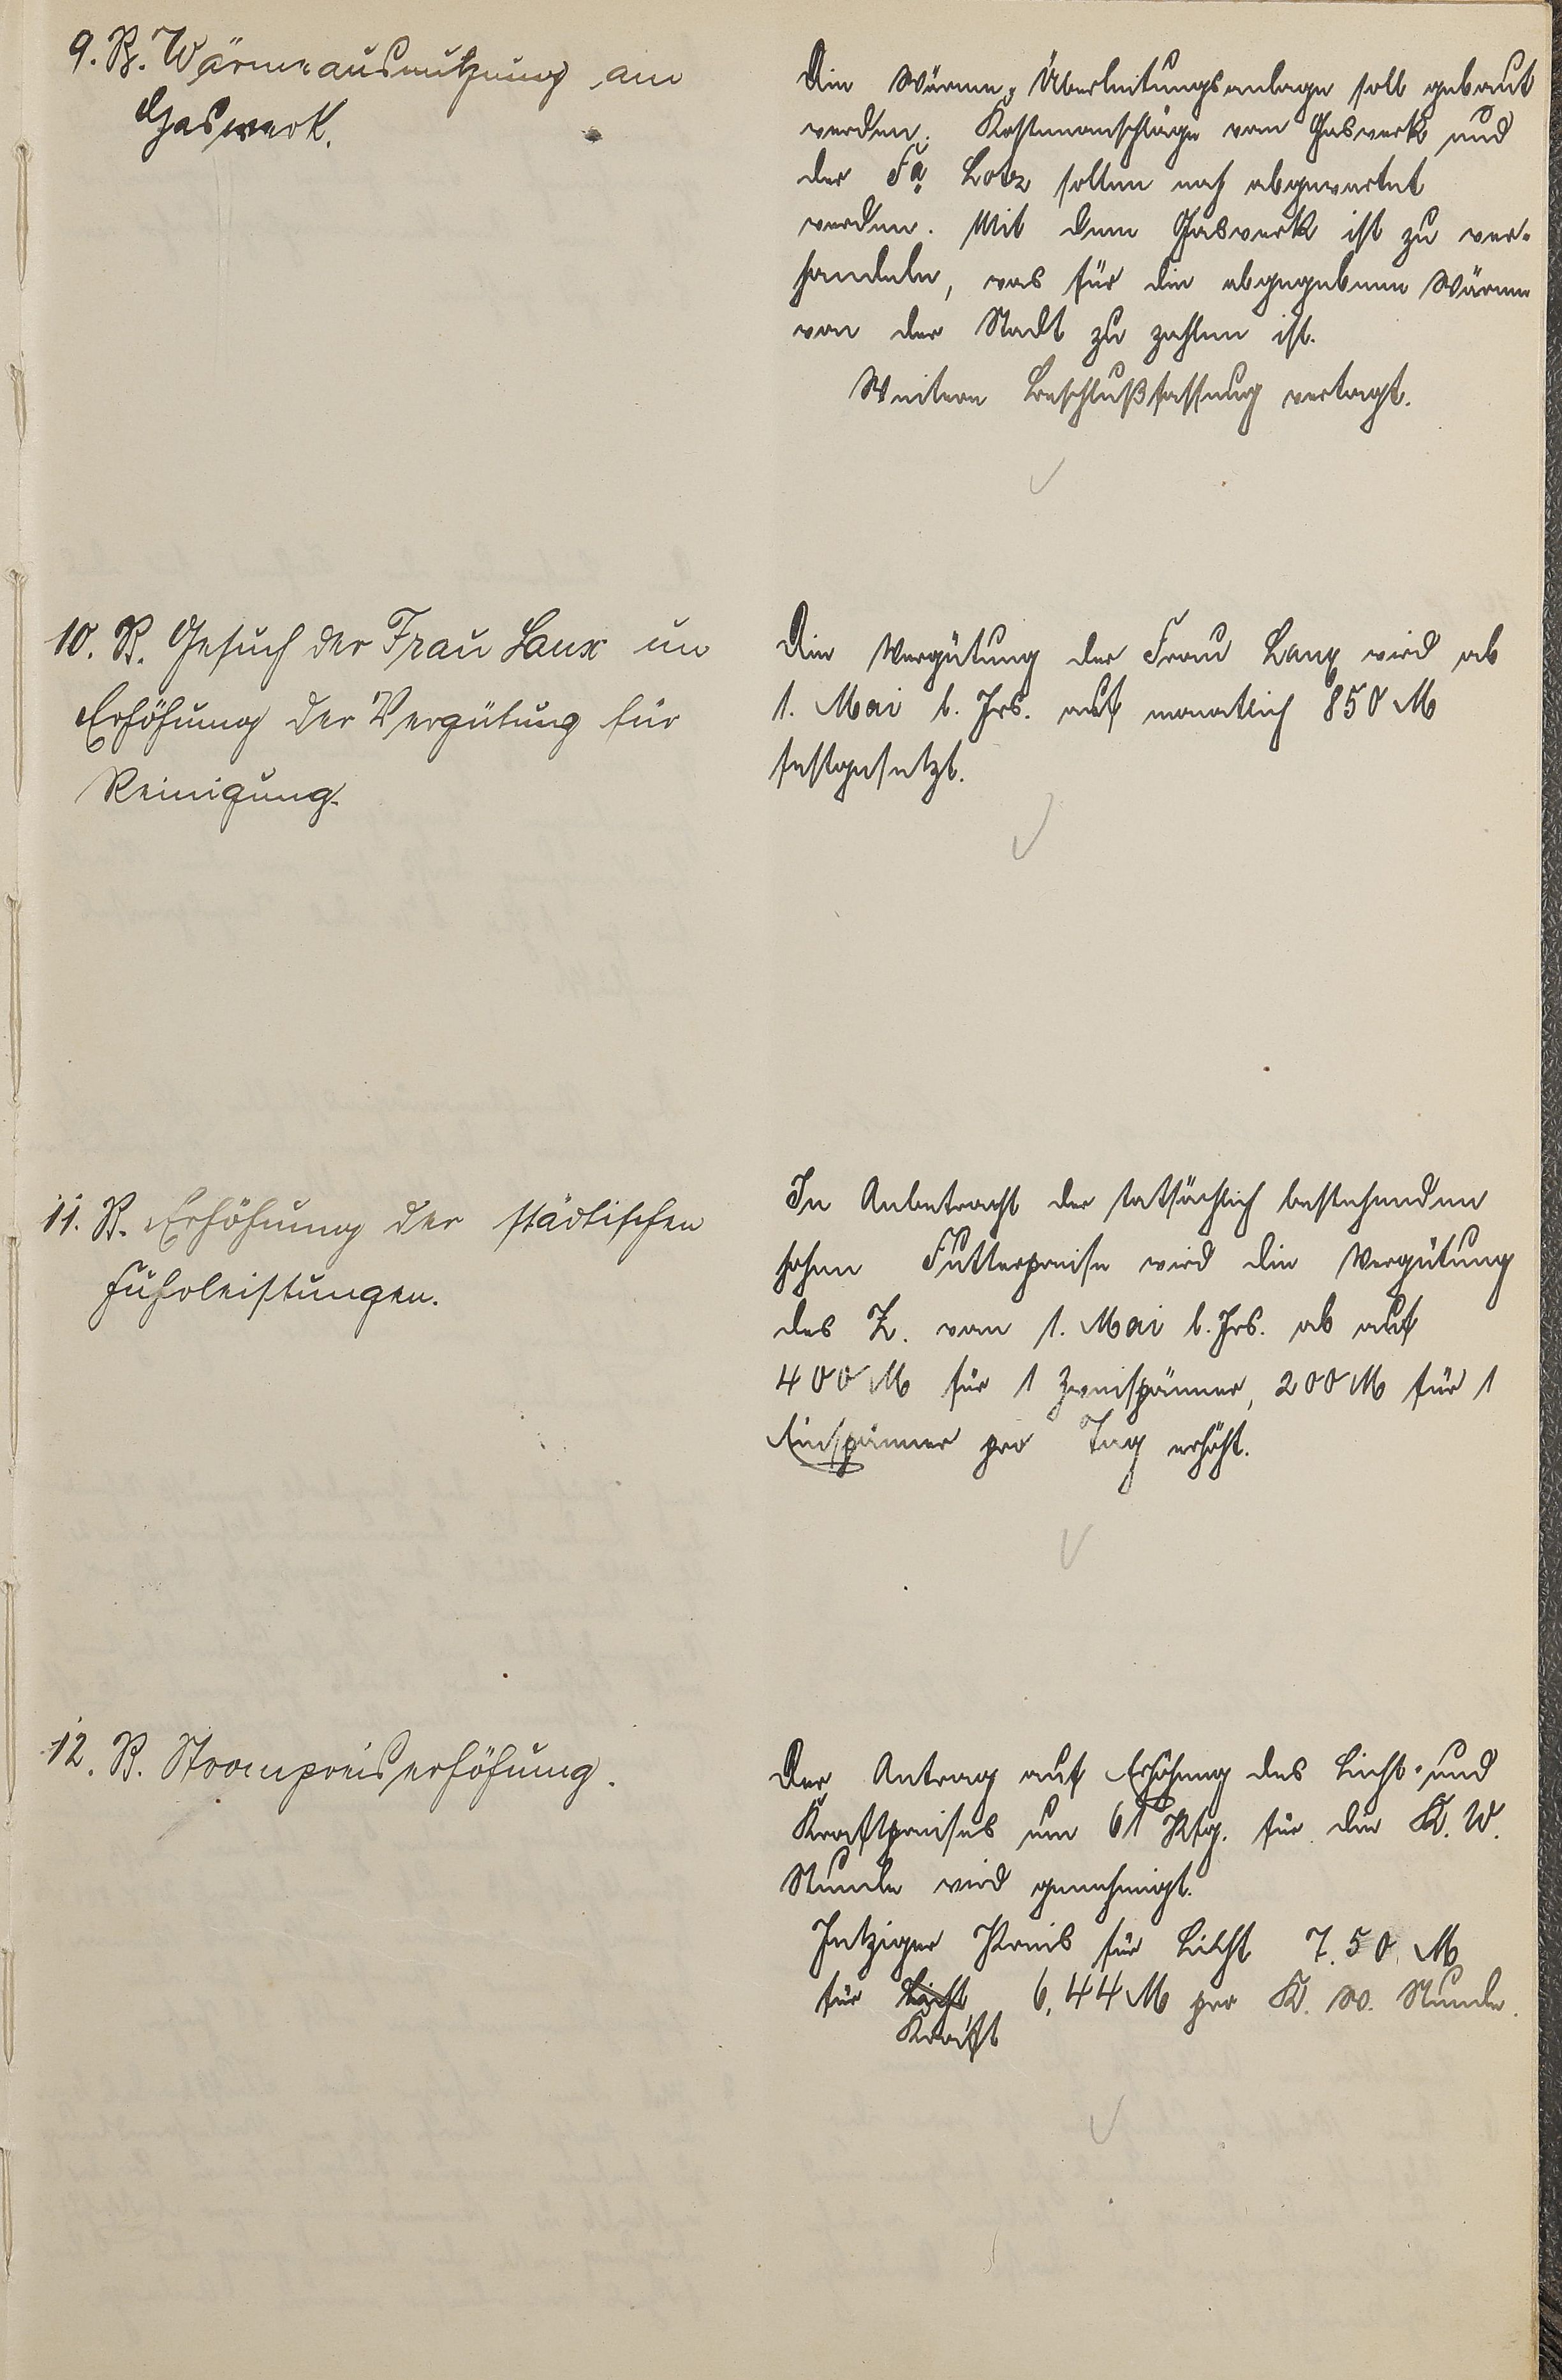 9. B. Wärmeausnutzung am
Gaswerk.
Die Wärme-Überleitungsanlage soll gebaut
werden. Kostenanschläge vom Gaswerk und
der Fa. Lotz sollen noch abgewartet
werden. Mit dem Gaswerk ist zu ver-
handeln, was für die abgegebene Wärme
von der Stadt zu zahlen ist.
Weitere Beschlußfassung vertagt.
10. B. Gesuch der Frau Laux um
Erhöhung der Vergütung für
Reinigung.
Die Vergütung der Frau Laux wird ab
1. Mai l. Jrs. auf monatlich 850 M
festgesetzt.
11. B. Erhöhung der städtischen
Fuhrleistungen.
In Anbetracht der tatsächlich bestehenden
hohen Futterpreise wird die Vergütung
des Z. vom 1. Mai l. Jrs. ab auf
400 M für 1 Zweispänner, 200 M für 1
Einspänner pro Tag erhöht.
12. B. Strompreiserhöhung.
Der Antrag auf Erhöhung des Licht- und
Kraftpreises um 61 Pfg. für die K. W.
Stunde wird genehmigt.
Jetziger Preis für Licht 7.50 M
für Licht 6,44 M pro K. W. Stunde.
Kraft